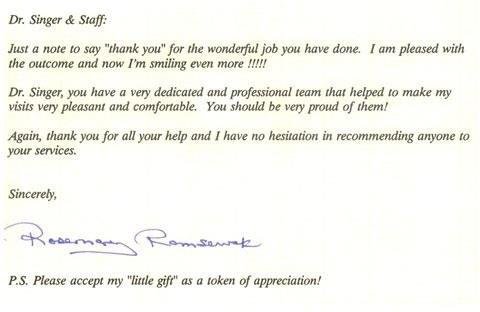 Dr. Singer & Staff:
Just a note to say "thank you" for the wonderful job you have done. I am pleased with
the outcome and now I'm smiling even more !!!!!
Dr. Singer, you have a very dedicated and professional team that helped to make my
visits very pleasant and comfortable. You should be very proud of them!
Again, thank you for all your help and I have no hesitation in recommending anyone to
your services.
Sincerely,
Rosemary Ramsewak
P.S. Please accept my "little gift" as a token of appreciation!